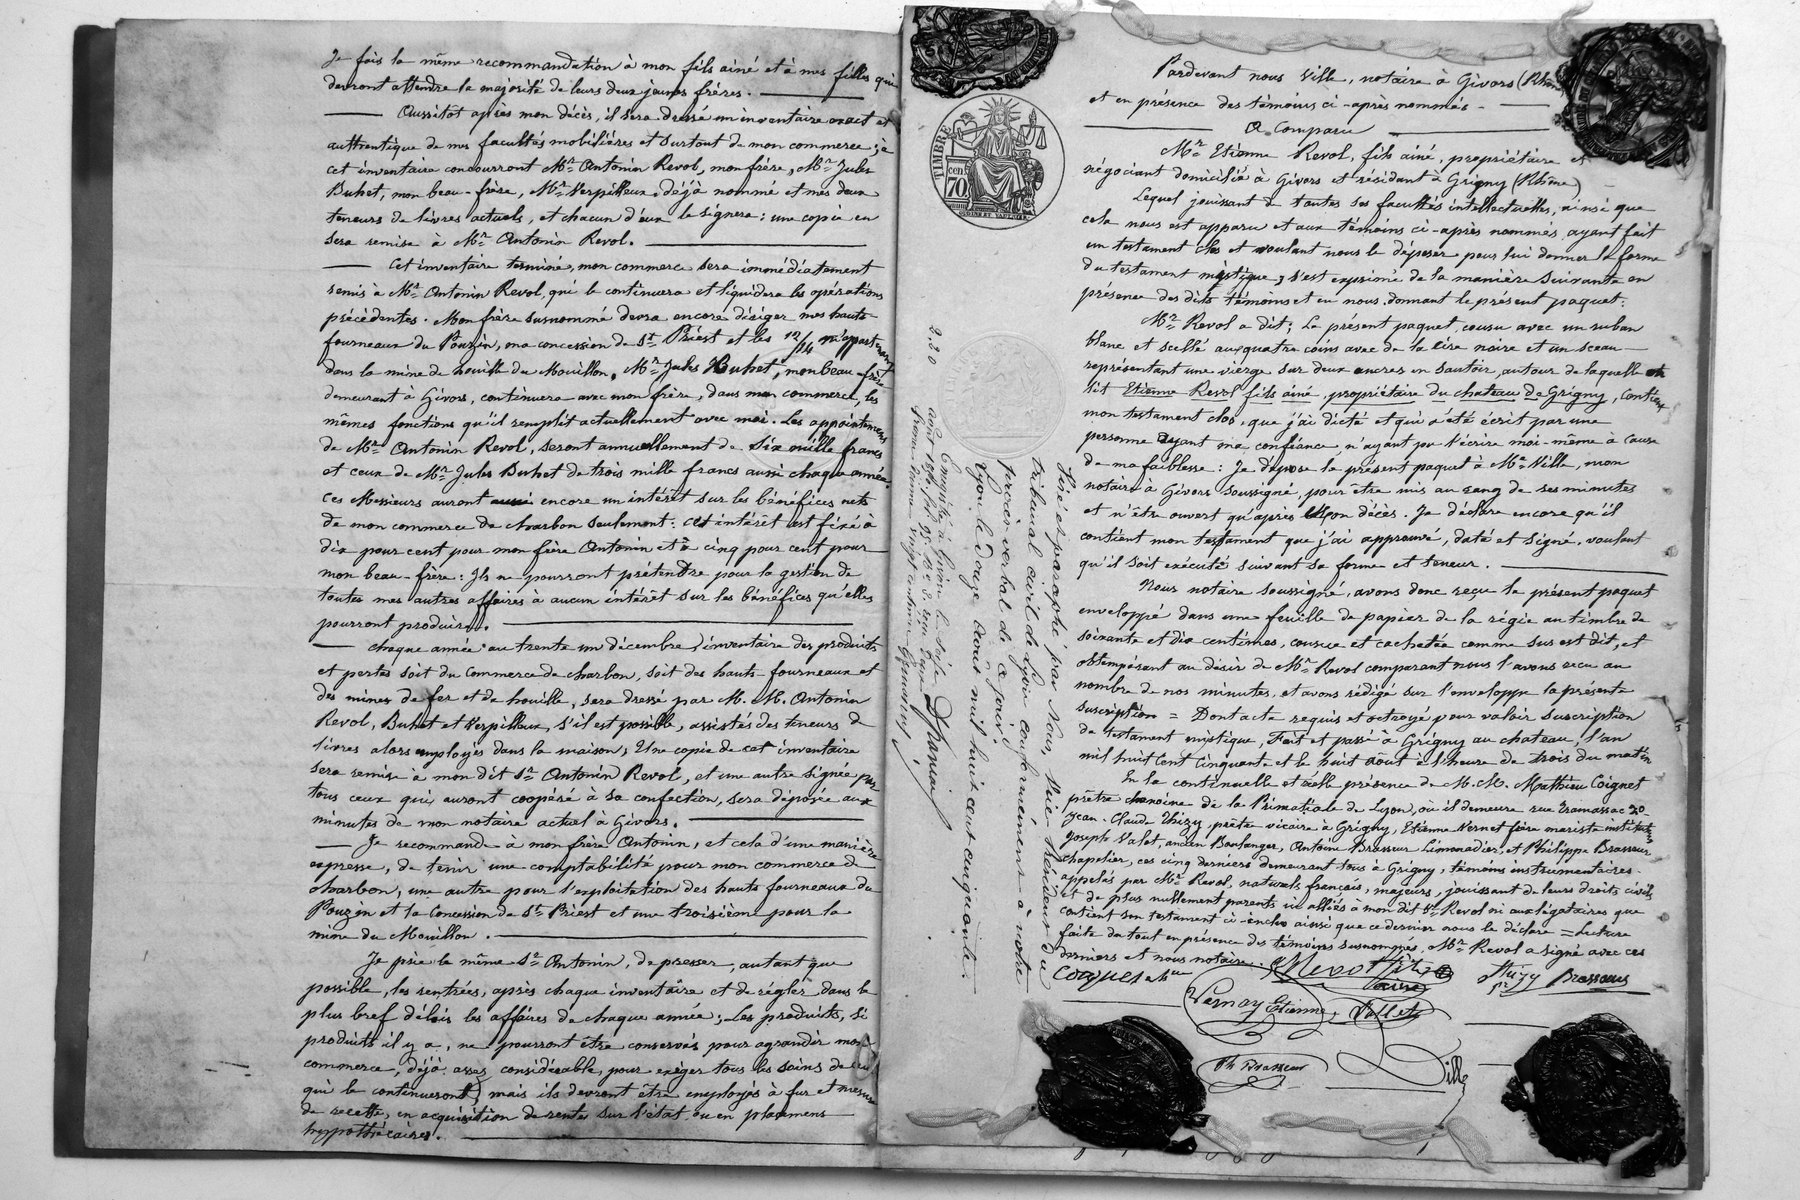 Je fais la même recommandation à mon fils ainé et à mes filles qui
devront attendre la majorité de leurs deux jeunes frères.
Aussitôt après mon décès, il sera dressé un inventaire exact et
authentique de mes facultés mobilières et surtout de mon commerce ; à
cet inventaire concourront Mr. Antonin Revol, mon frère, Mr. Jules
Buhet, mon beau-frère, Mr. Verpilleux, déjà nommé et mes deux
teneurs de livres actuels, et chacun d'eux le signera : une copie en
sera remise à Mr. Antonin Revol.
Cet inventaire terminé, mon commerce sera immédiatement
remis à Mr. Antonin Revol, qui le continuera et liquidera les opérations
précédentes. Mon frère susnommé devra encore diriger mes hauts-
fourneaux du Pouzin, ma concession de St. Priest et les 12/14 m'appartenant
dans la mine de houille du Mouillon. Mr. Jules Buhet, mon beau-frère
demeurant à Givors, continuera avec mon frère, dans mon commerce, les
mêmes fonctions qu'il remplit actuellement avec moi. Les appointemens
de Mr. Antonin Revol, seront annuellement de six mille francs
et ceux de Mr. Jules Buhet de trois mille francs aussi chaque année.
Ces Messieurs auront encore un intérêt sur les bénéfices nets
de mon commerce de charbon seulement : cet intérêt est fixé à
dix pour cent pour mon frère Antonin et à cinq pour cent pour
mon beau-frère : Ils ne pourront prétendre pour la gestion de
toutes mes autres affaires à aucun intérêt sur les bénéfices qu'elles
pourront produire.
Chaque année au trente un décembre, inventaire des produits
et pertes soit du commerce de charbon, soit des hauts-fourneaux et
des mines de fer et de houille, sera dressé par M. M. Antonin
Revol, Buhet et Verpilleux, s'il est possible, assistés des teneurs de
livres alors employés dans la maison ; Une copie de cet inventaire
sera remise à mon dit Sr. Antonin Revol, et une autre signée par
tous ceux qui auront coopéré à sa confection, sera déposée aux
minutes de mon notaire actuel à Givors.
Je recommande à mon frère Antonin, et cela d'une manière
expresse, de tenir une comptabilité pour mon commerce de
charbon, une autre pour l'exploitation des hauts fourneaux du
Pouzin et la Concession de St. Priest et une troisième pour la
mine du Mouillon.
Je prie le même Sr. Antonin, de presser, autant que
possible, les rentrées, après chaque inventaire et de régler dans le
plus bref délais les affaires de chaque année ; Les produits, si
produits il y a, ne pourront être conservés pour agrandir mon
commerce, déjà assez considérable, pour exiger tous les soins de ceux
qui le continueront, mais ils devront être employés à fur et mesure
de recette, en acquisition de rentes sur l'état ou en placemens
hypothécaires.
TIMBRE
70 cen
Pardevant nous Ville, notaire à Givors (Rhône)
et en présence des témoins ci-après nommés
A Comparu
Mr. Etienne Revol, fils ainé, propriétaire et
négociant domicilié à Givors et résidant à Grigny (Rhône)
Lequel jouissant de toutes ses facultés intellectuelles, ainsi que
cela nous est apparu et aux témoins ci-après nommés, ayant fait
un testament clos et voulant nous le déposer pour lui donner la forme
du testament mistique, s'est exprimé de la manière suivante en
présence des dits témoins et en nous donnant le présent paquet :
Mr. Revol a dit ; Le présent paquet, cousu avec un ruban
blanc et scellé aux quatre coins avec de la cire noire et un sceau
représentant une vierge sur deux ancres en sautoir, autour de laquelle on
lit Etienne Revol fils ainé, propriétaire du chateau de Grigny, contient
mon testament clos, que j'ai dicté et qui a été écrit par une
personne ayant ma confiance, n'ayant pu l'écrire moi-même à cause
de ma faiblesse : Je dépose le présent paquet à Me. Ville, mon
notaire à Givors soussigné, pour être mis au rang de ses minutes
et n'être ouvert qu'après mon décès. Je déclare encore qu'il
contient mon testament que j'ai approuvé, daté et signé, voulant
qu'il soit exécuté suivant sa forme et teneur.
Nous notaire soussigné, avons donc reçu le présent paquet
enveloppé dans une feuille de papier de la régie au timbre de
soixante et dix centimes, cousue et cachetée comme sus est dit, et
obtempérant au désir de Mr. Revol comparant nous l'avons reçu au
nombre de nos minutes, et avons rédigé sur l'enveloppe la présente
suscription = Dont acte requis et octroyé pour valoir suscription
de testament mystique, Fait et passé à Grigny au chateau, l'an
mil huit cent cinquante et le huit août à l'heure de trois du matin
En la continuelle et réelle présence de M. M. Mathieu Coignet
prêtre chanoine de la Primatiale de Lyon, où il demeure rue Tramassac 20
Jean-Claude Thizy, prêtre vicaire à Grigny, Etienne Vernet frère mariste instituteur
Joseph Valet, ancien Boulanger, Antoine Brasseur Limonadier, et Philippe Brasseur
chapelier, ces cinq derniers demeurant tous à Grigny, témoins instrumentaires
appelés par Mr. Revol, naturels français, majeurs, jouissant de leurs droits civils
et de plus nullement parents ni alliés à mon dit Sr. Revol ni aux légataires que
contient son testament ci-inclus ainsi que ce dernier nous le déclare = Lecture
faite du tout en présence des témoins susnommés, Mr. Revol a signé avec ces
derniers et nous notaire.
Revol fils
ainé
Thizy
Brasseur
Vernay Etienne
Vallet
Ph Brasseur
Ville
Visé et paraphé par Nous, Vice-Président du
tribunal civil de Lyon conformément à notre
procès-verbal de ce jour
Lyon le douze août mil huit cent cinquante.
Enregistré à Givors le seize
août 1850
2,20